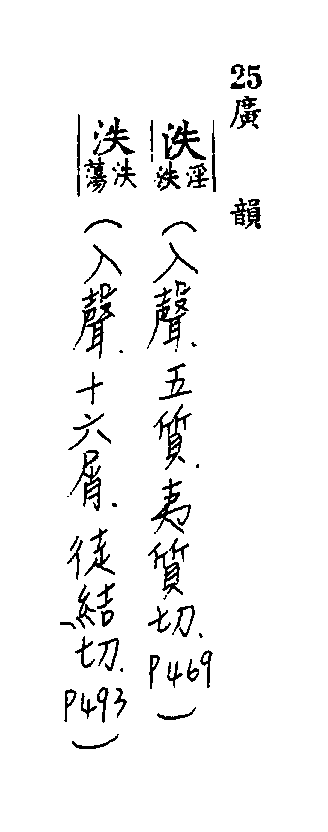 25廣韻
泆淫泆(入聲.五質.夷質切.P469)
泆蕩泆(入聲.十六屑.徒結切.P493)